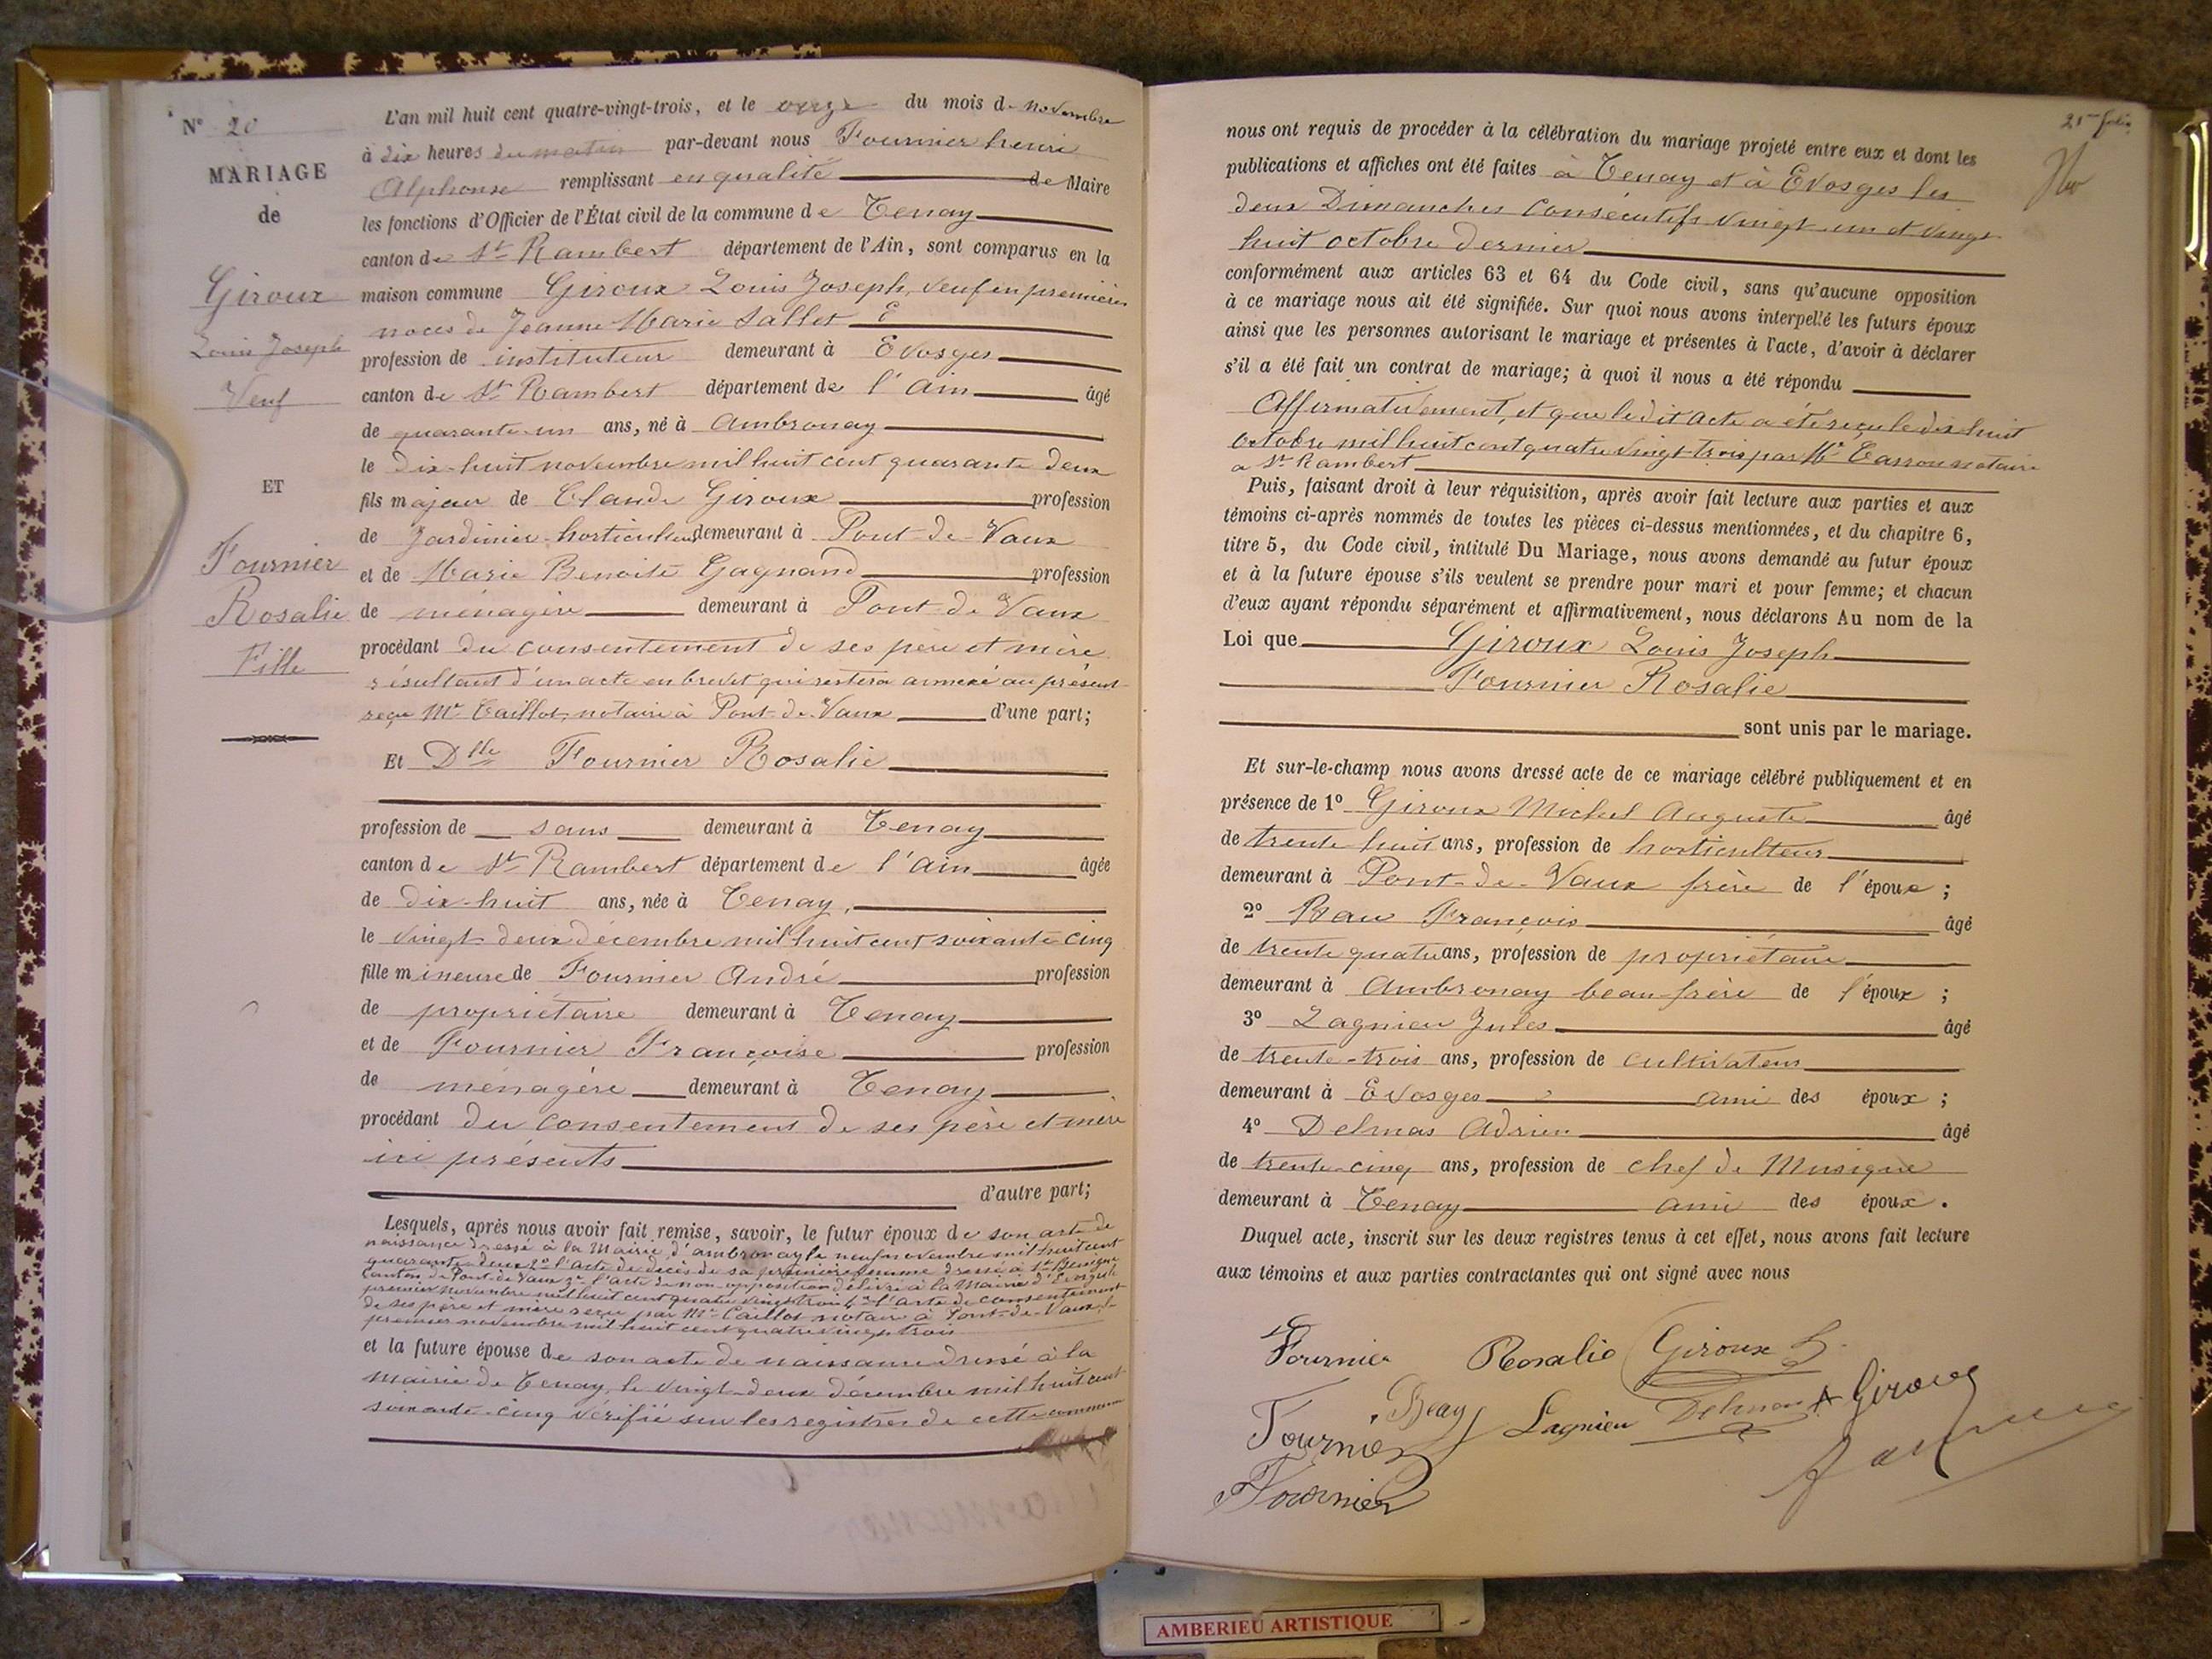 N° 20
MARIAGE
de
Giroux
Louis Joseph
Veuf
ET
Fournier
Rosalie
Fille
L'an mil huit cent quatre-vingt-trois, et le onze du mois de novembre
à dix heures du matin par-devant nous Fournier henri
Alphonse remplissant en qualité de Maire
les fonctions d'Officier de l'État civil de la commune de Tenay
canton de St Rambert département de l'Ain, sont comparus en la
maison commune Giroux Louis Joseph, veuf en premières
noces de Jeanne Marie Sallet E
profession de instituteur demeurant à Evosges
canton de St Rambert département de l'Ain âgé
de quarante-un ans, né à Ambronay
le dix-huit novembre mil huit cent quarante deux
fils majeur de Claude Giroux profession
de Jardinier-horticulteur demeurant à Pont-de-Vaux
et de Marie Benoite Gagnand profession
de ménagère demeurant à Pont-de-Vaux
procédant du consentement de ses père et mère
résultant d'un acte en brevet qui restera annexé au présent
reçu Me Caillot, notaire à Pont-de-Vaux d'une part;
Et Dlle Fournier Rosalie
profession de sans demeurant à Tenay
canton de St Rambert département de l'Ain âgée
de dix-huit ans, née à Tenay,
le vingt-deux décembre mil huit cent soixante cinq
fille mineure de Fournier André profession
de propriétaire demeurant à Tenay
et de Fournier Françoise profession
de ménagère demeurant à Tenay
procédant du consentement de ses père et mère
ici présents
d'autre part;
Lesquels, après nous avoir fait remise, savoir, le futur époux de son acte de
naissance dressé à la Mairie d'ambronay le neuf novembre mil huit cent
quarante-deux 2° l'acte de décès de sa première femme dressé à St Benigne
canton de Pont-de-Vaux 3° l'acte de non opposition délivré à la Mairie d'Evosges le
premier novembre mil huit cent quatre vingt trois 4° l'acte de consentement
de ses père et mère reçu par Me Caillot notaire à Pont-de-Vaux le
premier novembre mil huit cent quatre vingt trois
et la future épouse de son acte de naissance dressé à la
mairie de Tenay, le vingt-deux décembre mil huit cent
soixante-cinq vérifié sur les registres de cette commune
21me folio
nous ont requis de procéder à la célébration du mariage projeté entre eux et dont les
publications et affiches ont été faites à Tenay et à Evosges les
deux Dimanches consécutifs vingt-un et vingt
huit octobre dernier
conformément aux articles 63 et 64 du Code civil, sans qu'aucune opposition
à ce mariage nous ait été signifiée. Sur quoi nous avons interpellé les futurs époux
ainsi que les personnes autorisant le mariage et présentes à l'acte, d'avoir à déclarer
s'il a été fait un contrat de mariage; à quoi il nous a été répondu
Affirmativement, et que ledit acte a été reçu le dix huit
octobre mil huit cent quatre vingt-trois par Me notaire
a St Rambert
Puis, faisant droit à leur réquisition, après avoir fait lecture aux parties et aux
témoins ci-après nommés de toutes les pièces ci-dessus mentionnées, et du chapitre 6,
titre 5, du Code civil, intitulé Du Mariage, nous avons demandé au futur époux
et à la future épouse s'ils veulent se prendre pour mari et pour femme; et chacun
d'eux ayant répondu séparément et affirmativement, nous déclarons Au nom de la
Loi que Giroux Louis Joseph
Fournier Rosalie
sont unis par le mariage.
Et sur-le-champ nous avons dressé acte de ce mariage célébré publiquement et en
présence de 1° Giroux Michel Auguste âgé
de trente huit ans, profession de horticulteur
demeurant à Pont-de-Vaux frère de l'époux ;
2° François âgé
de trente quatre ans, profession de propriétaire
demeurant à Ambronay beau-frère de l'époux ;
3° Lagnieu Jules âgé
de trente-trois ans, profession de cultivateur
demeurant à Evosges ami des époux ;
4° Delmas Adrien âgé
de trente-cinq ans, profession de chef de Musique
demeurant à Tenay ami des époux.
Duquel acte, inscrit sur les deux registres tenus à cet effet, nous avons fait lecture
aux témoins et aux parties contractantes qui ont signé avec nous
Fournier Rosalie Giroux L.
Lagnieu Delmas A Giroux
Fournier
Fournier
AMBERIEU ARTISTIQUE